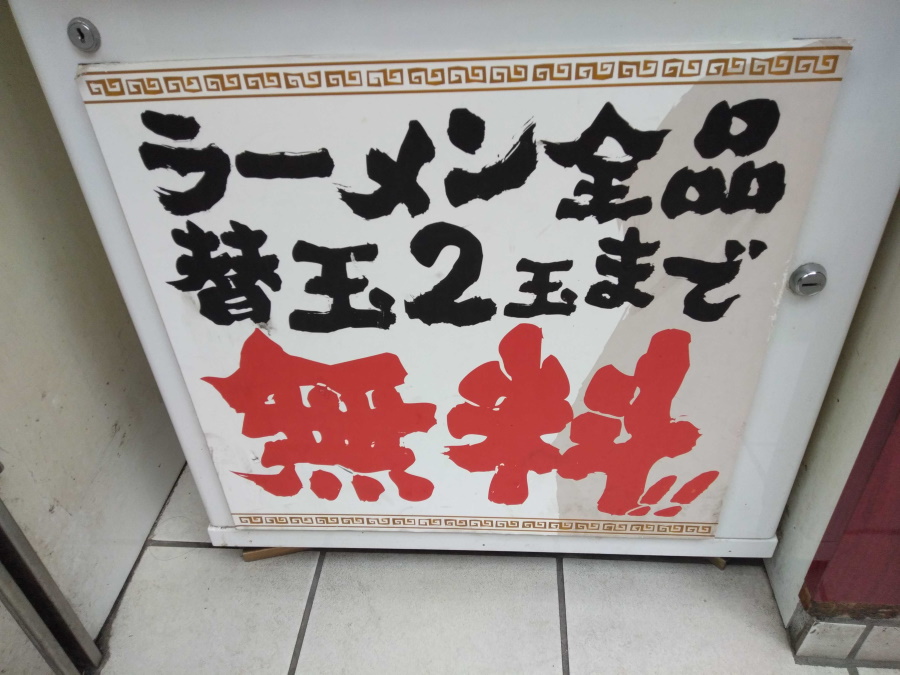 ラーメン全品
替玉2玉まで
無料!!